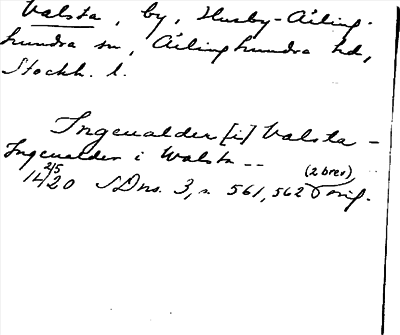 Valsta, by, Husby-Ärling-
hundra sn, Ärlinghundra hd,
Stockh. l.
Ingeualder [i] Valsta –
Ingeualder i Walsta --
(2 brev)
14 2/5 20 SDns. 3, s. 561, 562 orig.